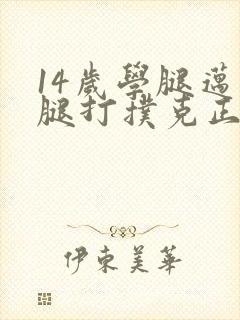 14歲學腿邁
腿打撲克正
伊東美華